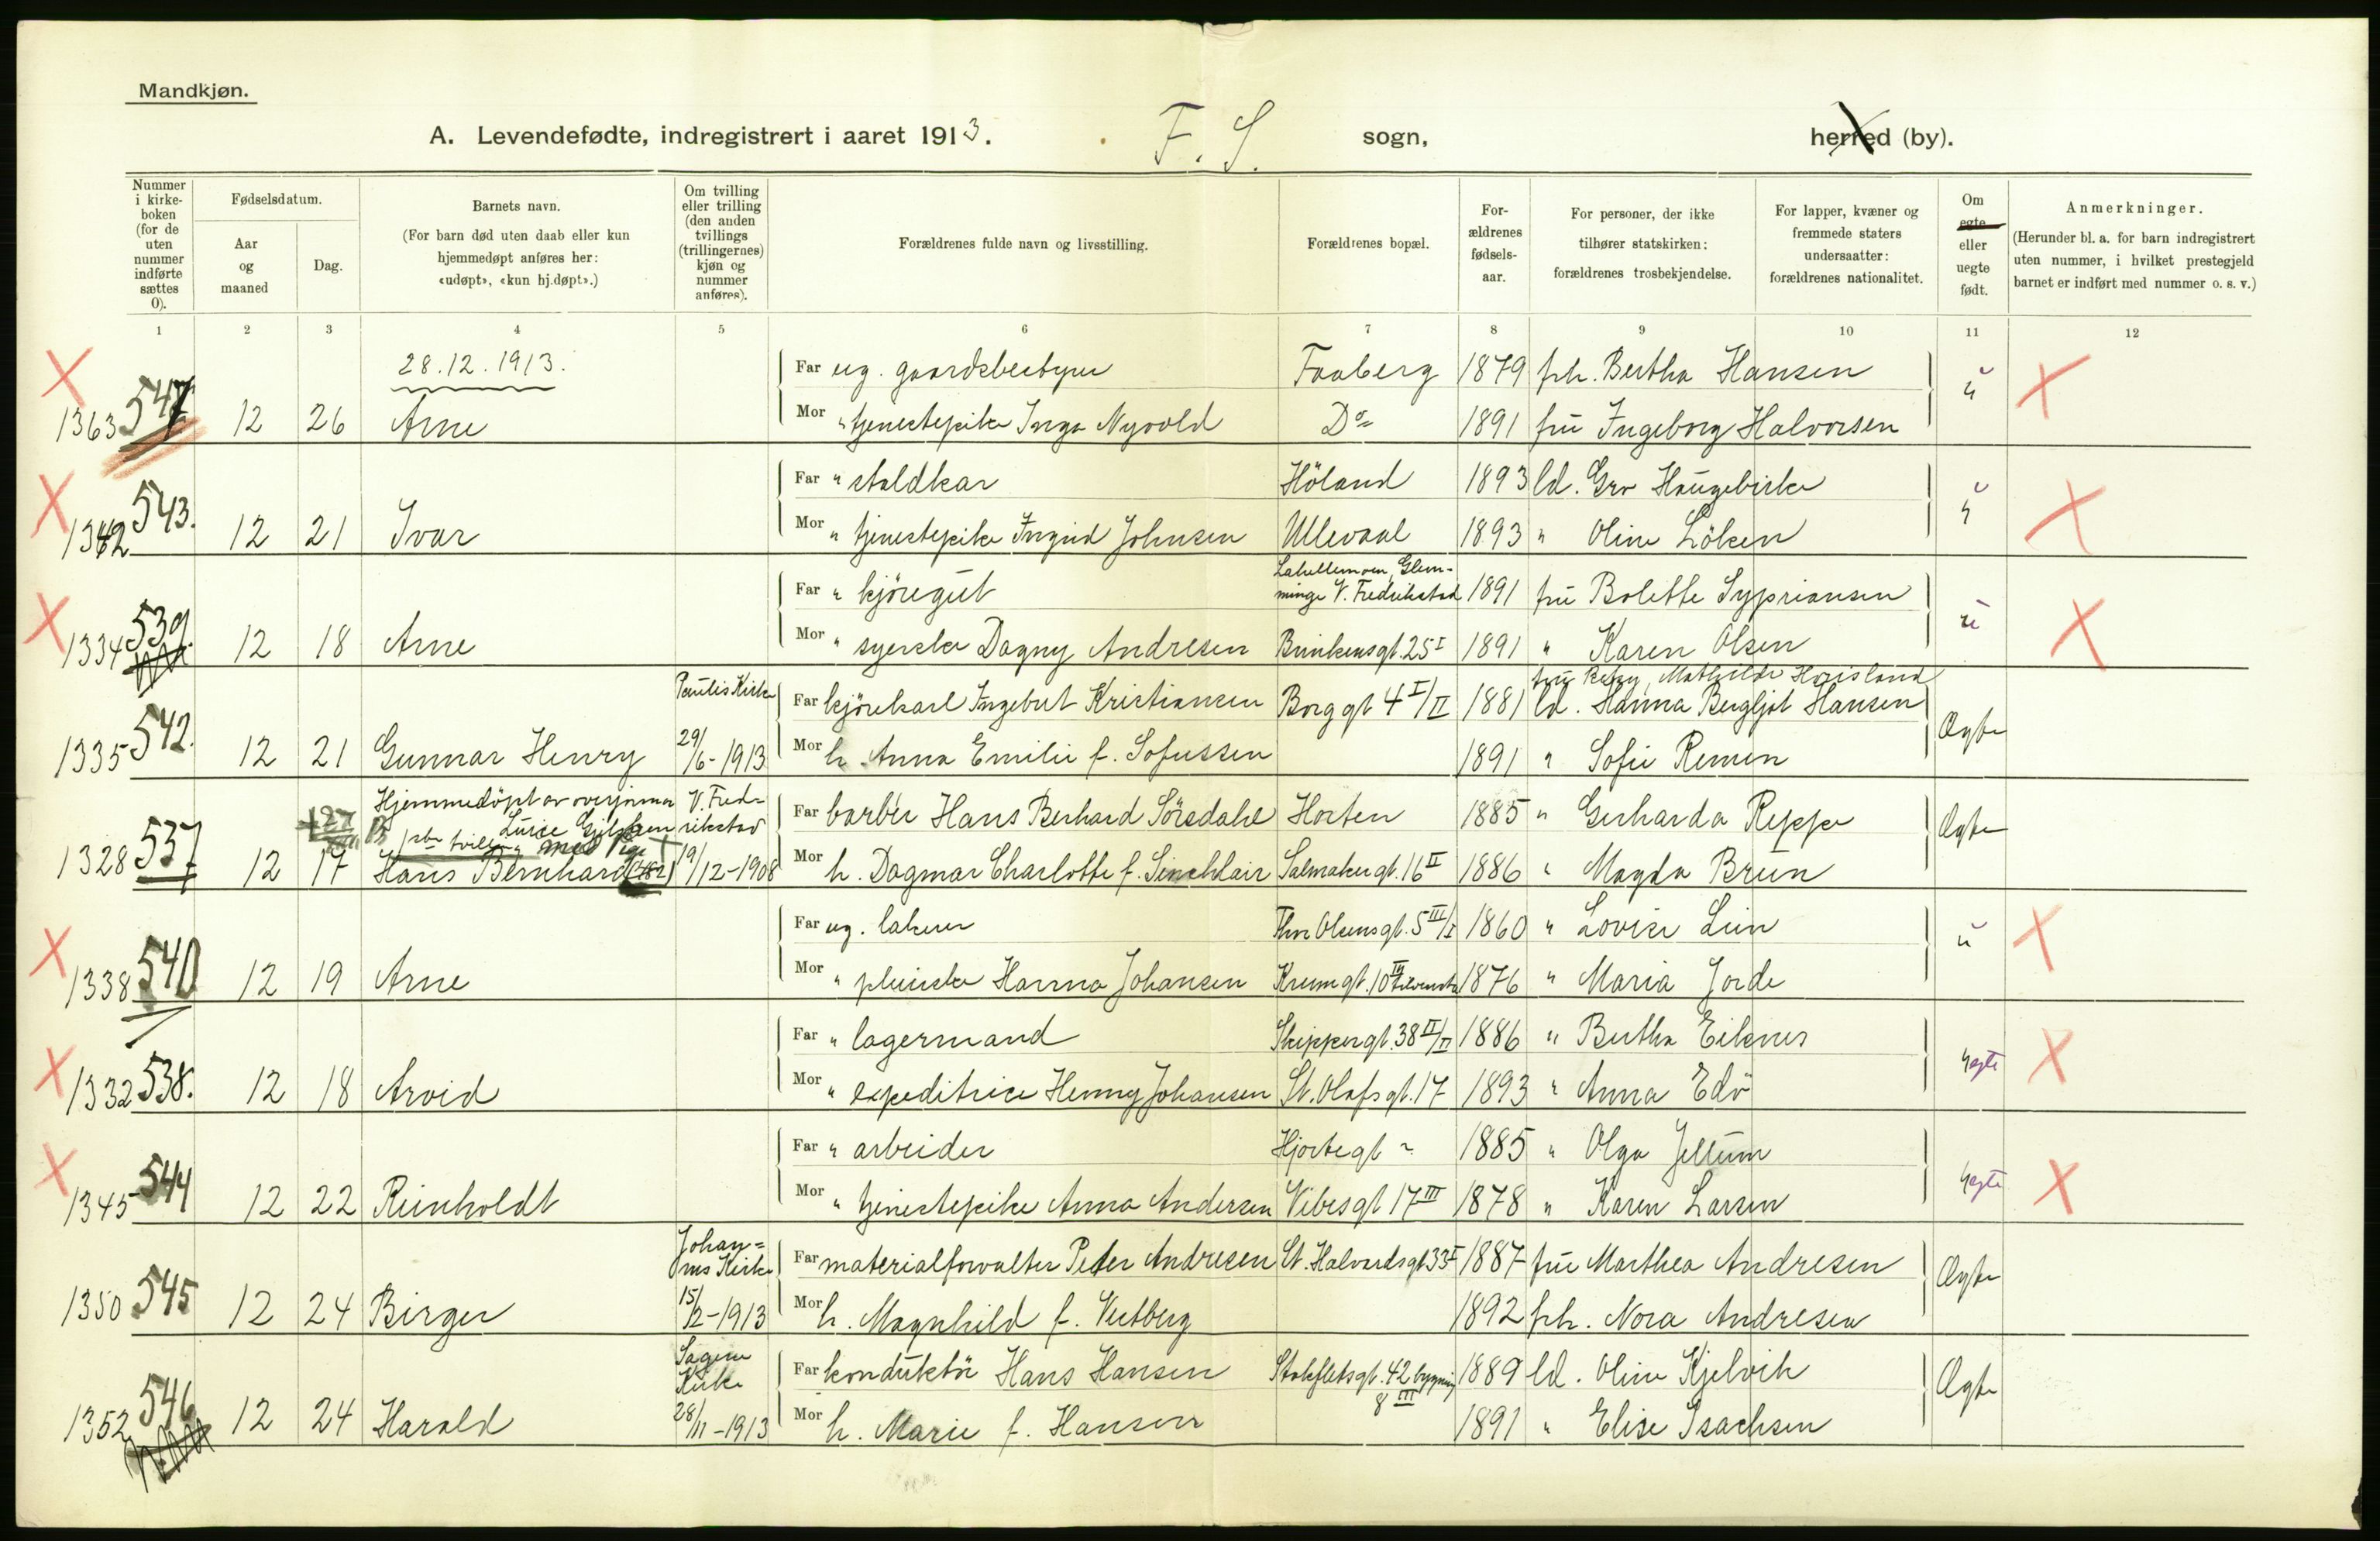 Mandkjøn.
A. Levendefødte, indregistrert i aaret 1913. F. S. sogn, herred (by).
Nummer i kirkeboken (for de uten nummer indførte sættes 0).
Fødselsdatum.
Aar og maaned
Dag.
Barnets navn.
(For barn død uten daab eller kun hjemmedøpt anføres her: «udøpt», «kun hj.døpt».)
Om tvilling eller trilling (den anden tvillings (trillingernes) kjøn og nummer anføres).
Forældrenes fulde navn og livsstilling.
Forældrenes bopæl.
Forældrenes fødselsaar.
For personer, der ikke tilhører statskirken: forældrenes trosbekjendelse.
For lapper, kvæner og fremmede staters undersaatter: forældrenes nationalitet.
Om egte eller uegte født.
Anmerkninger.
(Herunder bl. a. for barn indregistrert uten nummer, i hvilket prestegjeld barnet er indført med nummer o. s. v.)
1 2 3 4 5 6 7 8 9 10 11 12
28.12.1913. Far ug. gaardsbestyrer Faaberg 1879 frk. Bertha Hansen
1363 547 12 26 Arne Mor " tjenestepike Inga Nyvold Do 1891 fru Ingeborg Halvorsen u
Far " staldkar Höland 1893 ld. Gro Haugebirke
1342 543. 12 21 Ivar Mor " tjenestepike Ingrid Johnsen Ullevaal 1893 " Oline Löken u
Far " kjöregut Glemminge V. Fredrikstad 1891 fru Bolette Sypriansen
1334 539. 12 18 Arne Mor " syerske Dagny Andresen Brinkensgt. 25 I 1891 " Karen Olsen u
fru Mathilde
Paulis Kirke Far kjörekarl Ingebret Kristiansen Borggt 4 I/II 1881 ld. Hanna Bergljot Hansen
1335 542. 12 21 Gunnar Henry 29/6-1913 Mor h. Anna Emilie f. Sofussen 1891 " Sofie Remen Ægte
Hjemmedöpt av overjormor V. Fredrikstad Far barber Hans Berhard Sörsdahl Horten 1885 " Gerharda Reppe
Luise
1328 537 12 17 Hans Bernhard (482) 19/12-1908 Mor h. Dagmar Charlotte f. Sinchlair Salmakergt. 16 II 1886 " Magda Brun Ægte
Far ug. lakerer Thv. Olsensgt. 5 III/I 1860 " Lovise Lien
1338 540 12 19 Arne Mor " pleierske Hanna Johansen Krumgt. 10 1876 " Maria Jorde u
Far " lagermand Skippergt. 38 II/II 1886 " Bertha Eiknes
1332 538. 12 18 Arvid Mor " expeditrice Henny Johansen St. Olafsgt. 17 1893 " Anna Edö uegte
Far " arbeider Hjortegt " 1885 " Olga Jellum
1345 544 12 22 Reinholdt Mor " tjenestepike Anna Andersen Vibesgt 17 III 1878 " Karen Larsen uegte
Johannes Kirke Far materialforvalter Peter Andresen St. Halvardsgt 33 I 1887 fru Marthea Andresen
1350 545 12 24 Birger 15/2-1913 Mor h. Magnhild f. Vestberg 1892 frk. Nora Andresen Ægte
Sagene Kirke Far konduktör Hans Hansen Stokfletsgt. 42 bygning 8 III 1889 ld. Oline Kjelvik
1352 546 12 24 Harald 28/11-1913 Mor h. Marie f. Hansen 1891 " Elise Isachsen Ægte